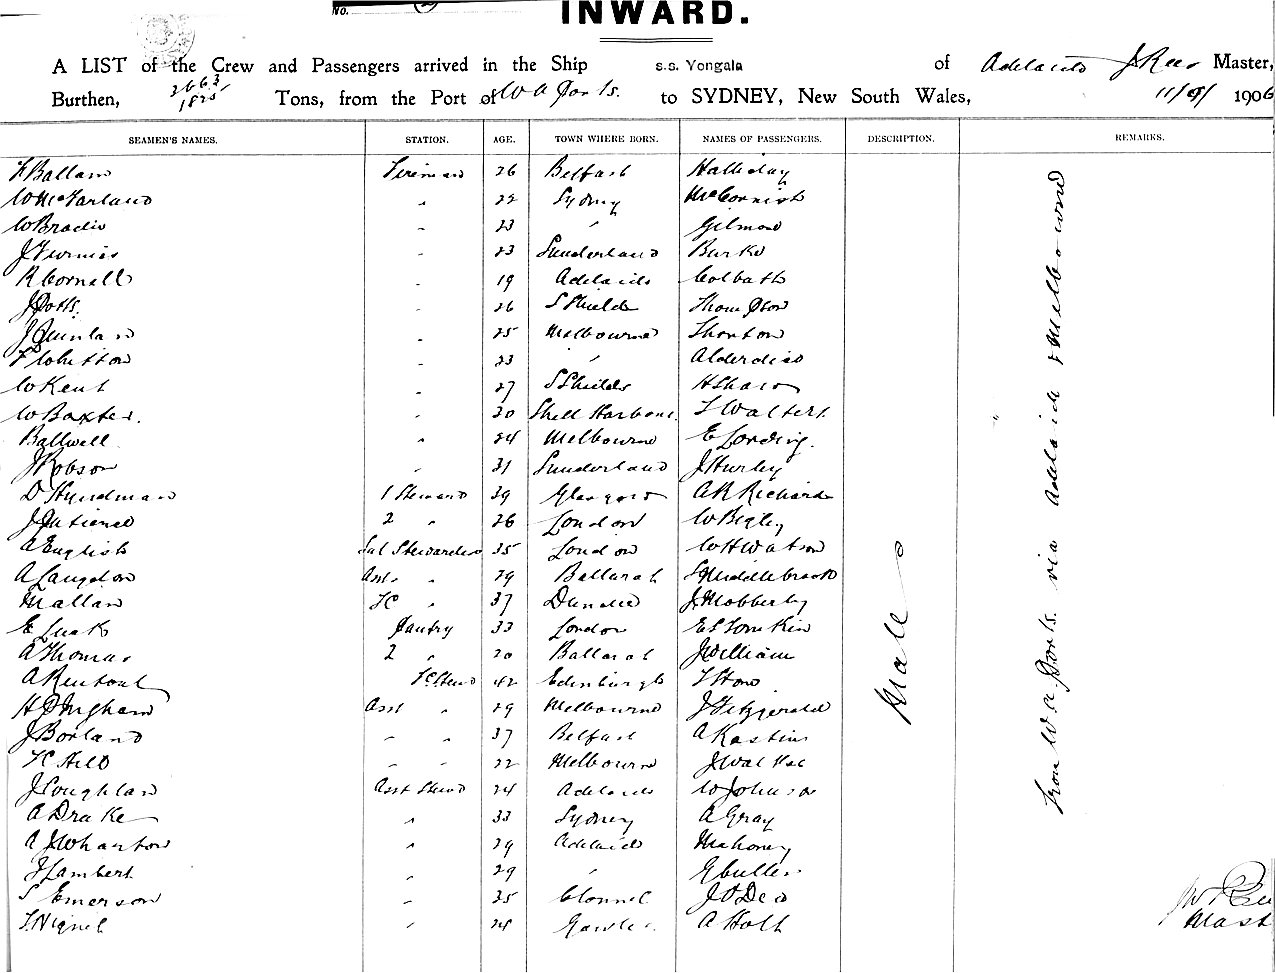 No.
INWARD.
A LIST of the Crew and Passengers arrived in the Ship s.s. Yongala of Adelaide J Rees Master,
Burthen, 2663 1825 Tons, from the Port of W A Ports. to SYDNEY, New South Wales, 11/9/ 1906
SEAMEN'S NAMES. STATION. AGE. TOWN WHERE BORN. NAMES OF PASSENGERS. DESCRIPTION. REMARKS.
Ballam Fireman 26 Belfast Halliday
W McFarland " 22 Sydney McCornish
W Bradie " 23 " Gilmore
J Furniss " 23 Sunderland Burke
R Cornell " 19 Adelaide Colbath
J Potts " 26 S Shields Thompson
J Quinlan " 25 Melbourne Thonton
F Whitton " 23 " Alderdice
W Kent " 27 S Shields H Shaw
W Baxter. " 20 Shell Harbour T Walters
Ballwell " 24 Melbourne E Lording.
J Robson " 31 Sunderland J Hurley
D Hyndman 1 Steward 39 Glasgow A R Richards
J Patience 2 " 26 London W Begley
A English Sal Stewardess 35 London W H Watson
A Langdon Asst " 29 Ballarat S Middlebrook
Mallan FC " 37 Dundee J Mobberly
E Lusk Pantry 33 London E S Tomkin
A Thomas 2 " 20 Ballarat J William
A Rentoul FC Stew 42 Edinburgh T Stow
H P Ingham Asst " 29 Melbourne J Fitzgerald
J Borland " " 37 Belfast A Kastin
" " 22 Melbourne J Walker
J Coughlan Asst Stewd 24 Adelaide W Johnson
A Drake " 33 Sydney A Gray
A J Wharton " 29 Adelaide Mahoney
J Lambert " 29 " G Cutler
S Emerson " 35 Clonmel J O Dea
" 24 Gawler A Holt
Male
From W A Ports via Adelaide & Melbourne
Rees
Mast